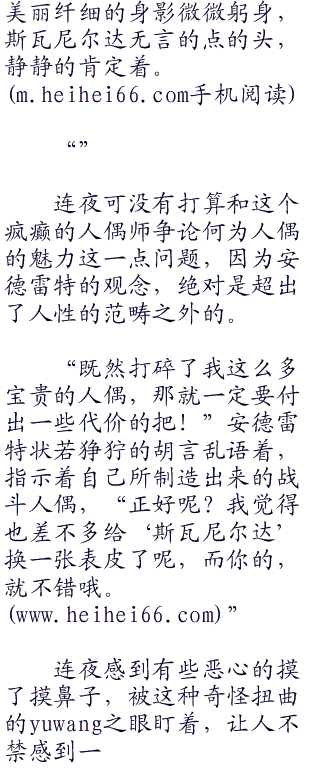 美丽纤细的身影微微躬身，
斯瓦尼尔达无言的点的头，
静静的肯定着。
(m.heihei66.com手机阅读)
“”
连夜可没有打算和这个
疯癫的人偶师争论何为人偶
的魅力这一点问题，因为安
德雷特的观念，绝对是超出
了人性的范畴之外的。
“既然打碎了我这么多
宝贵的人偶，那就一定要付
出一些代价的把！”安德雷
特状若狰狞的胡言乱语着，
指示着自己所制造出来的战
斗人偶，“正好呢？我觉得
也差不多给‘斯瓦尼尔达’
换一张表皮了呢，而你的，
就不错哦。
(www.heihei66.com)”
连夜感到有些恶心的摸
了摸鼻子，被这种奇怪扭曲
的yuwang之眼盯着，让人不
禁感到一